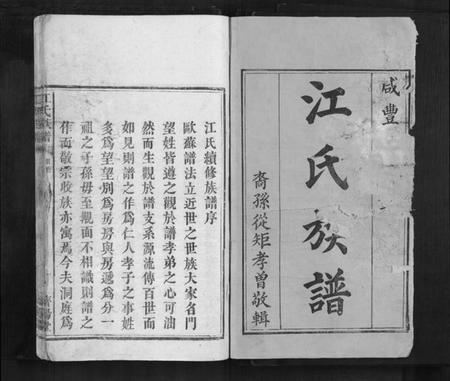 咸豐
江氏族譜
裔孫從矩孝曾敬輯
江氏續修族譜序
歐蘇譜法立近世之世族大家名門
望姓皆遵之觀於譜孝弟之心可油
然而生觀於譜支系源流傳百世而
如見則譜之作爲仁人孝子之事姓
多爲望望別爲房房與房遞爲分一
祖之子孫毋至覿面不相識則譜之
作而敬宗收族亦寓焉今夫洞庭爲
江氏族譜